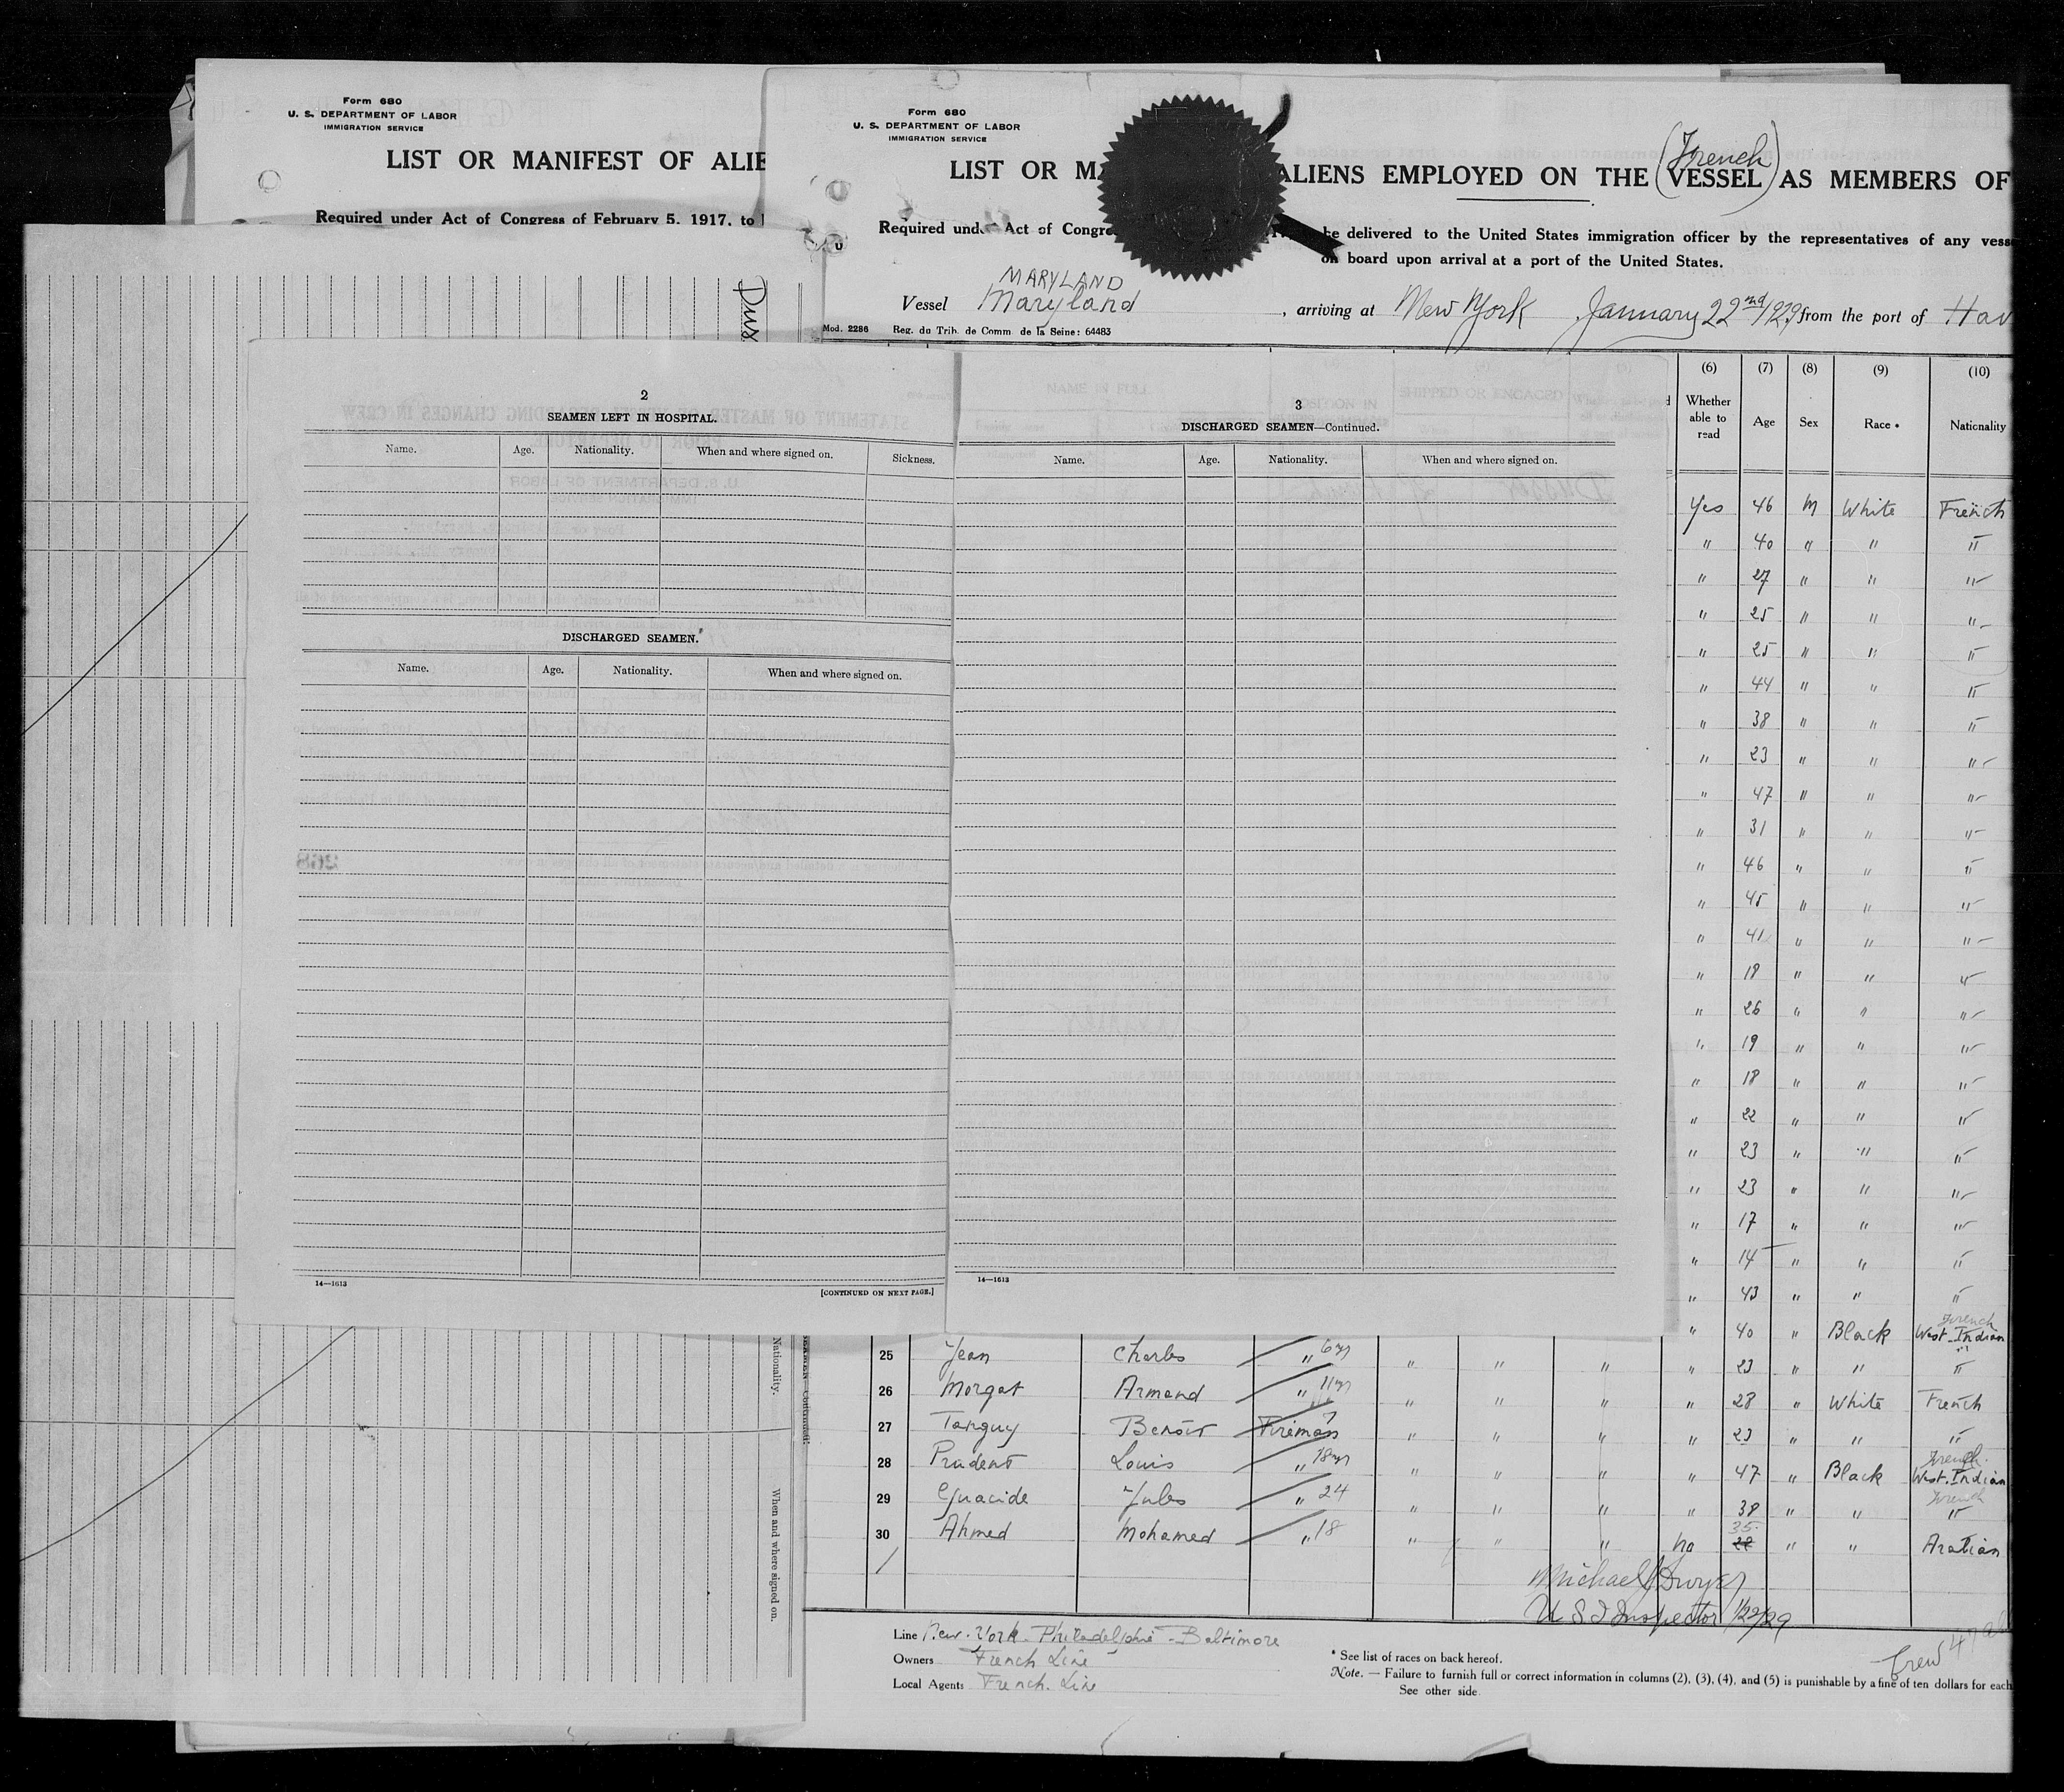 Form 680
U. S. DEPARTMENT OF LABOR
IMMIGRATION SERVICE
LIST OR MANIFEST OF ALIE
Required under Act of Congress of February 5, 1917, to
Form 680
U. S. DEPARTMENT OF LABOR
IMMIGRATION SERVICE
(French)
LIST OR MA ALIENS EMPLOYED ON THE (VESSEL) AS MEMBERS OF
Required under Act of Congre be delivered to the United States immigration officer by the representatives of any vess
on board upon arrival at a port of the United States.
MARYLAND
Vessel Maryland , arriving at New York January 22nd 1929 from the port of Hav
Mod. 2286 Reg. du Trib. de Comm. de la Seine: 64483
Dus
2
SEAMEN LEFT IN HOSPITAL.
Name. Age. Nationality. When and where signed on. Sickness.
DISCHARGED SEAMEN.
Name. Age. Nationality. When and where signed on.
14—1613
[CONTINUED ON NEXT PAGE.]
3
DISCHARGED SEAMEN—Continued.
Name. Age. Nationality. When and where signed on.
14—1613
(6) (7) (8) (9) (10)
Whether able to read Age Sex Race * Nationality
Yes 46 M White French
" 40 " " "
" 27 " " "
" 25 " " "
" 25 " " "
" 44 " " "
" 38 " " "
" 23 " " "
" 47 " " "
" 31 " " "
" 46 " " "
" 45 " " "
" 41 " " "
" 18 " " "
" 26 " " "
" 19 " " "
" 18 " " "
" 22 " " "
" 23 " " "
" 23 " " "
" 17 " " "
" 14 " " "
" 43 " " "
French
" 40 " Black West Indian
25 Jean Charles " 6 yrs " " " " 23 " " "
26 Morgat Armand " 11 yrs " " " " 28 " White French
27 Tanguy Benoit Fireman 7 " " " " 23 " " "
French
28 Prudent Louis " 18 yrs " " " " 47 " Black West Indian
French
29 Jules " 24 " " " " 38 " " "
35
30 Ahmed Mohamed " 18 " " " no 28 " " Arabian
Michael J Dwyer
U S I Inspector 1/22/29
Line New-York-Philadelphie-Baltimore
Owners French Line
Local Agents French Line
* See list of races on back hereof.
Note. — Failure to furnish full or correct information in columns (2), (3), (4), and (5) is punishable by a fine of ten dollars for each
See other side
Crew 47
Nationality.
When and where signed on.